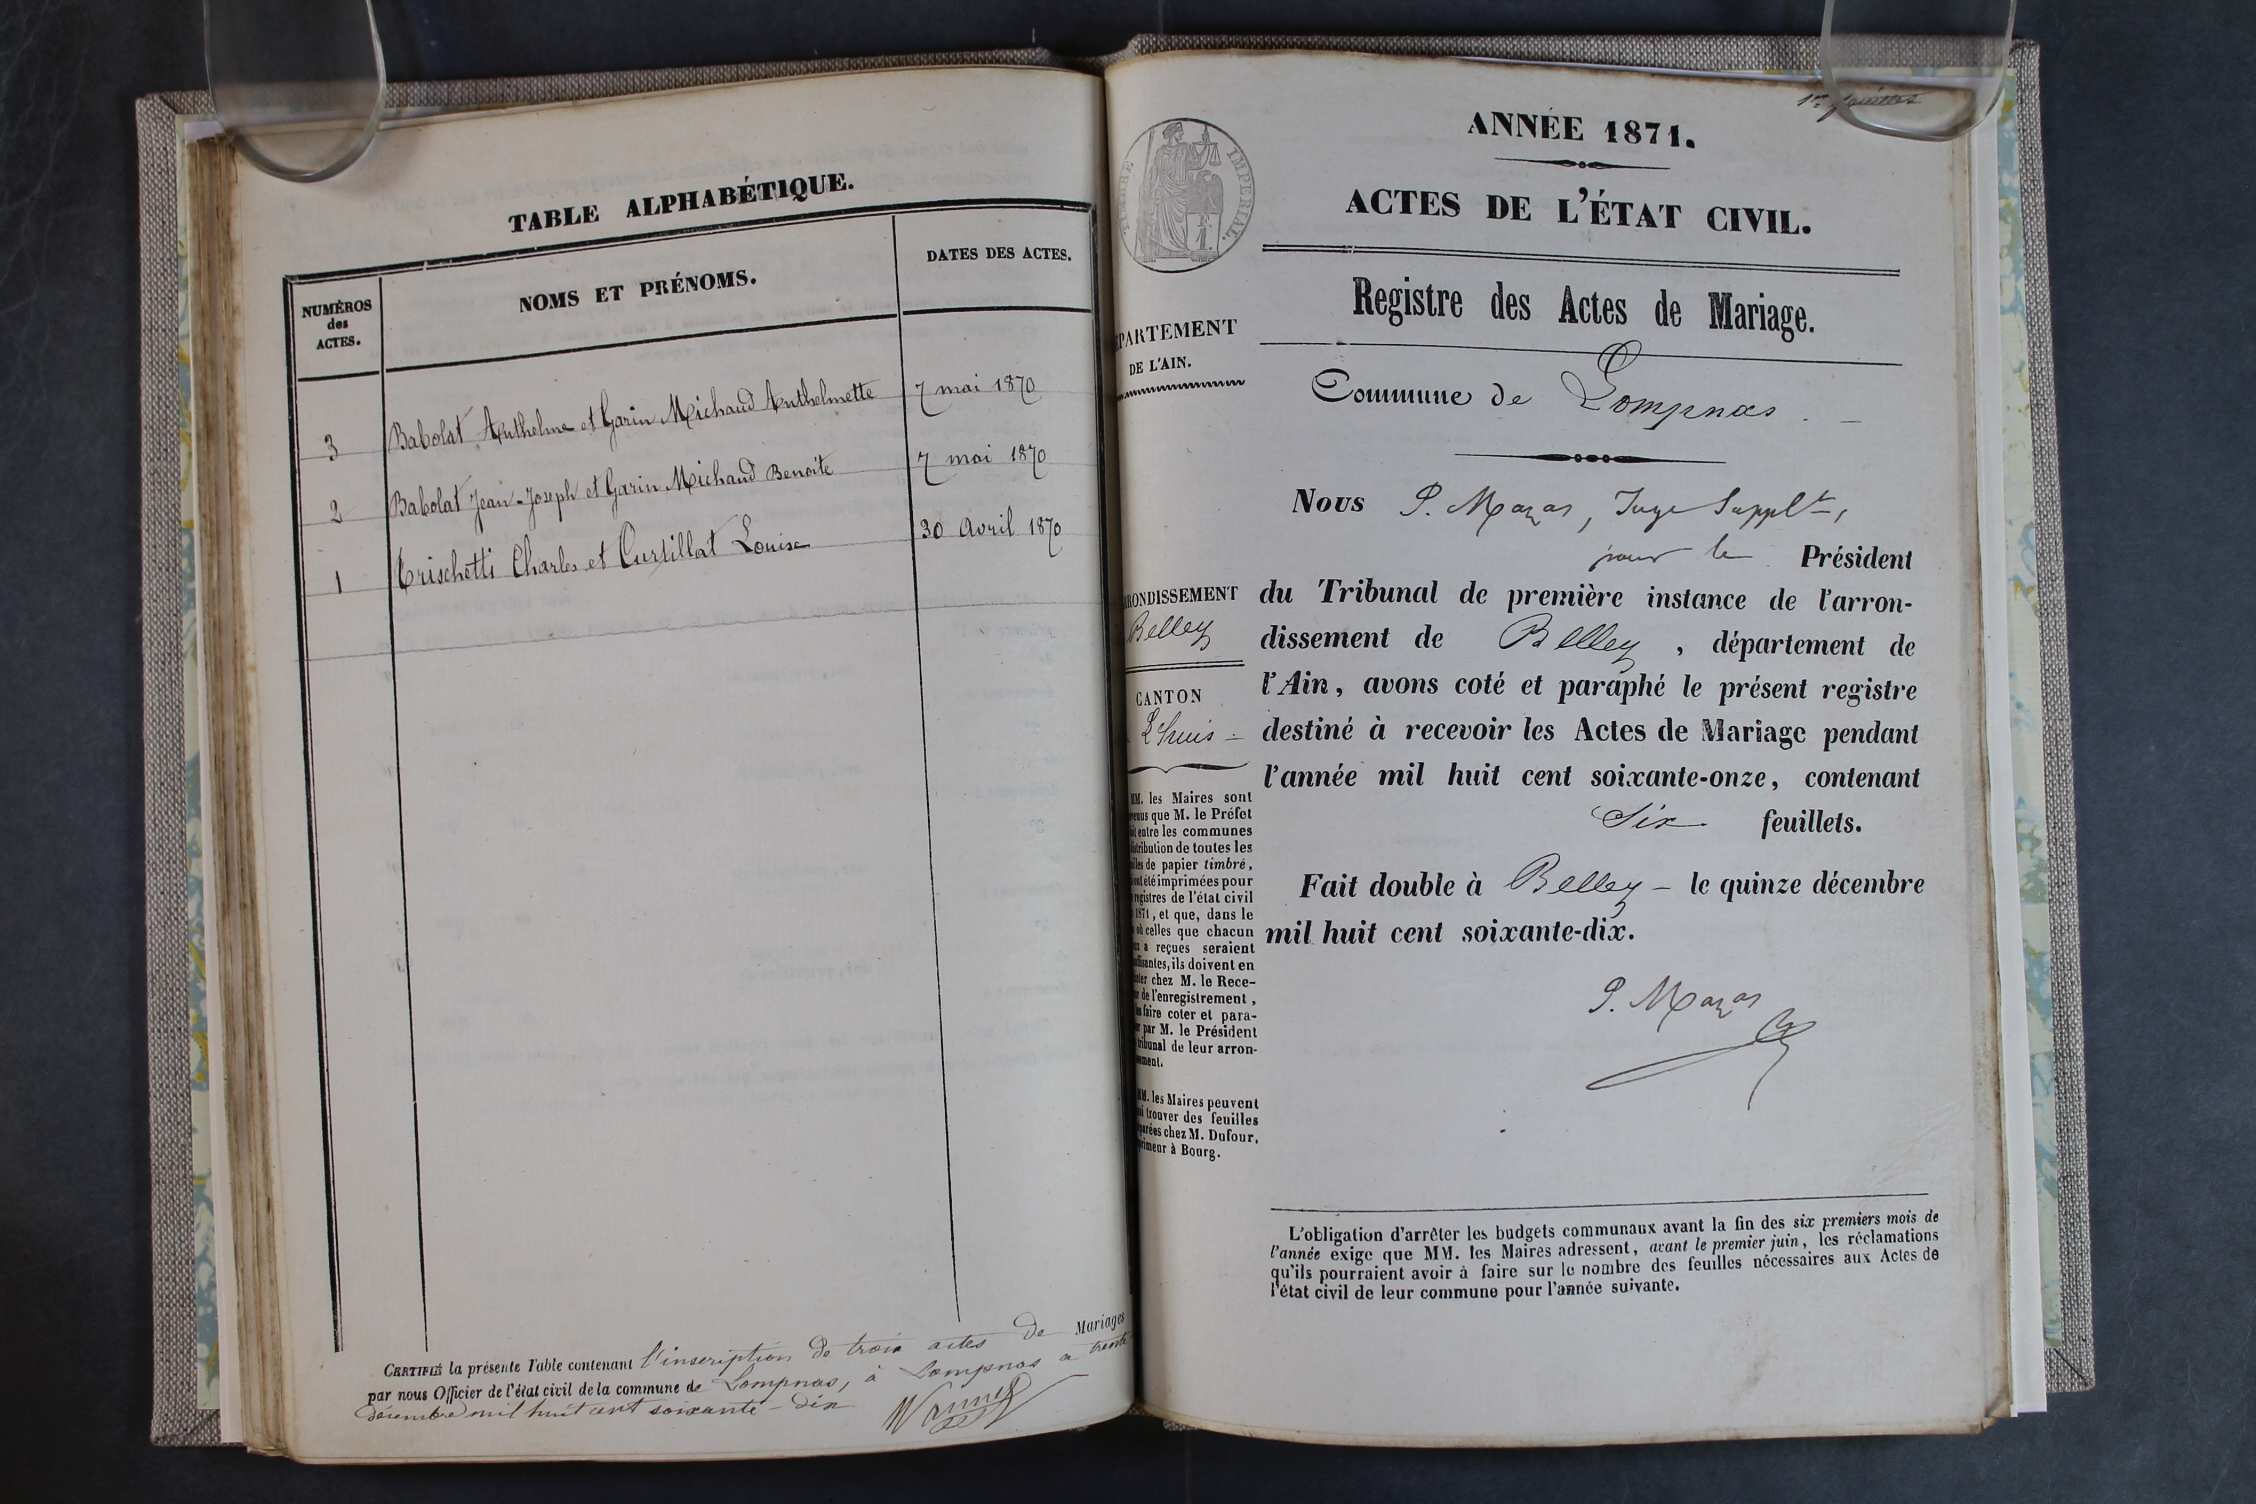 TABLE ALPHABÉTIQUE.
NUMÉROS
des
ACTES.
NOMS ET PRÉNOMS.
DATES DES ACTES.
3 Babolat Anthelme et Garin Michaud Anthelmette 7 mai 1870
2 Babolat Jean-Joseph et Garin Michaud Benoite 7 mai 1870
1 Crischetti Charles et Curtillat Louise 30 Avril 1870
CERTIFIÉ la présente Table contenant l'inscription de trois actes de Mariages
par nous Officier de l'état civil de la commune de Lompnas, à Lompnas a trente
décembre mil huit cent soixante-dix
1er feuillet
TIMBRE IMPERIAL.
1.
ANNÉE 1871.
ACTES DE L'ÉTAT CIVIL.
Registre des Actes de Mariage.
Commune de Lompnas.
PARTEMENT
DE L'AIN.
RONDISSEMENT
Belley
CANTON
Lhuis
MM. les Maires sont
enus que M. le Préfet
entre les communes
tribution de toutes les
les de papier timbré,
ont été imprimées pour
registres de l'état civil
1871, et que, dans le
où celles que chacun
a reçues seraient
isantes, ils doivent en
ter chez M. le Rece-
de l'enregistrement,
faire coter et para-
par M. le Président
tribunal de leur arron-
ment.
MM. les Maires peuvent
trouver des feuilles
parées chez M. Dufour,
rimeur à Bourg.
Nous P. Mazas, Juge Supplt,
pour le Président
du Tribunal de première instance de l'arron-
dissement de Belley, département de
l'Ain, avons coté et paraphé le présent registre
destiné à recevoir les Actes de Mariage pendant
l'année mil huit cent soixante-onze, contenant
Six feuillets.
Fait double à Belley - le quinze décembre
mil huit cent soixante-dix.
P. Mazas
L'obligation d'arrêter les budgets communaux avant la fin des six premiers mois de
l'année exige que MM. les Maires adressent, avant le premier juin, les réclamations
qu'ils pourraient avoir à faire sur le nombre des feuilles nécessaires aux Actes de
l'état civil de leur commune pour l'année suivante.